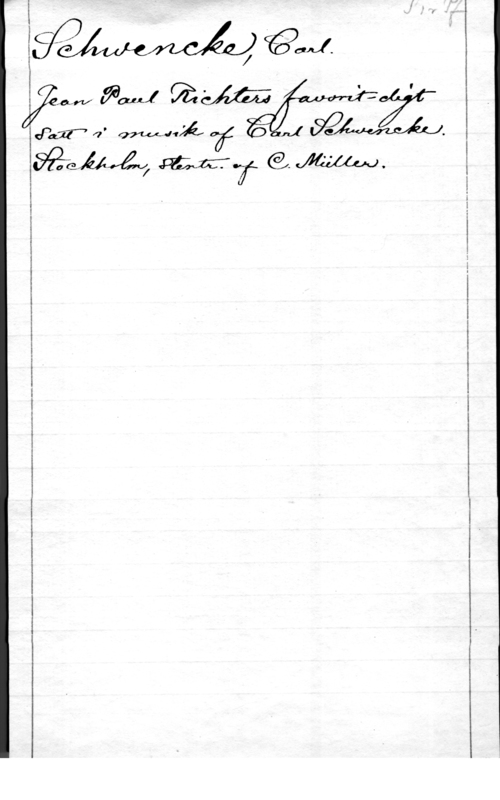 Schwencke, Carl.
Jean Paul Richters favorit-digt
satt i musik af Carl Schwencke.
Stockholm, stentr. af C. Müller.